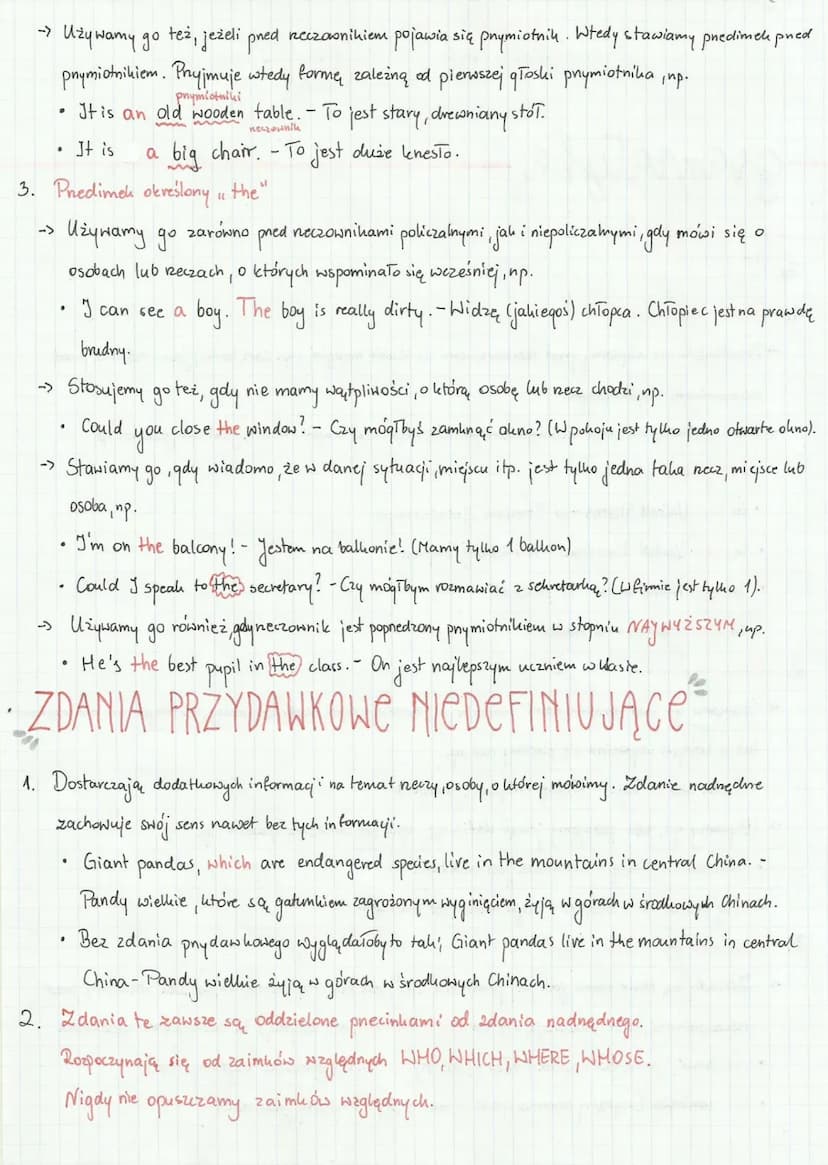 -> Używamy go też, jeżeli przed rzeczownikiem pojawia się przymiotnik. Wtedy stawiamy przedimek przed
przymiotnikiem. Przyjmuje wtedy formę zależną od pierwszej głoski przymiotnika, np.
przymiotniki
• It is an old wooden table. - To jest stary, drewniany stół.
rzeczownik
• It is a big chair. - To jest duże krzesło.
3. Przedimek określony "the"
-> Używamy go zarówno przed rzeczownikami policzalnymi, jak i niepoliczalnymi, gdy mówi się o
osobach lub rzeczach, o których wspominało się wcześniej, np.
• I can see a boy. The boy is really dirty. - Widzę (jakiegoś) chłopca. Chłopiec jest na prawdę
brudny.
-> Stosujemy go też, gdy nie mamy wątpliwości, o którą osobę lub rzecz chodzi, np.
• Could you close the window? - Czy mógłbyś zamknąć okno? (W pokoju jest tylko jedno otwarte okno).
-> Stawiamy go, gdy wiadomo, że w danej sytuacji, miejscu itp. jest tylko jedna taka rzecz, miejsce lub
osoba, np.
• I'm on the balcony! - Jestem na balkonie! (Mamy tylko 1 balkon)
• Could I speak to the secretary? - Czy mógłbym rozmawiać z sekretarką? (W firmie jest tylko 1).
-> Używamy go również, gdy rzeczownik jest poprzedzony przymiotnikiem w stopniu NAJWYŻSZYM, np.
• He's the best pupil in the class. - On jest najlepszym uczniem w klasie.
• ZDANIA PRZYDAWKOWE NIEDEFINIUJĄCE
1. Dostarczają dodatkowych informacji na temat rzeczy, osoby, o której mówimy. Zdanie nadrzędne
zachowuje swój sens nawet bez tych informacji.
• Giant pandas, which are endangered species, live in the mountains in central China. -
Pandy wielkie, które są gatunkiem zagrożonym wyginięciem, żyją w górach w środkowych Chinach.
• Bez zdania przydawkowego wyglądałoby to tak: Giant pandas live in the mountains in central
China - Pandy wielkie żyją w górach w środkowych Chinach.
2. Zdania te zawsze są oddzielone przecinkami od zdania nadrzędnego.
Rozpoczynają się od zaimków względnych WHO, WHICH, WHERE, WHOSE.
Nigdy nie opuszczamy zaimków względnych.